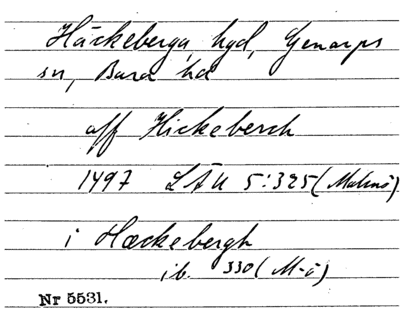 Häckeberga, hgd, Genarps
sn, Bara hd
aff Hickeberch
1497 LÄU 5:325 (Malmö)
i Hackebergh
ib. 330 (M-ö)
Nr 5531.